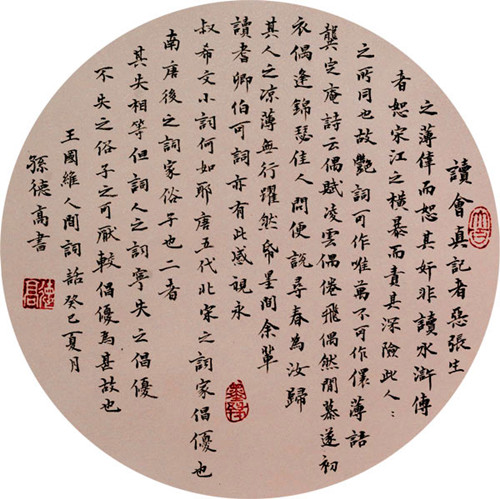 讀會真記者惡張生
之薄倖而恕其奸非讀水滸傳
者恕宋江之橫暴而責其深險此人〻
之所同也故艷詞可作唯萬不可作儇薄語
龔定庵詩云偶賦凌雲偶倦飛偶然閒慕遂初
衣偶逢錦瑟佳人問便說尋春為汝歸
其人之涼薄無行躍然帋墨間余輩
讀耆卿伯可詞亦有此感視永
叔希文小詞何如耶唐五代北宋之詞家倡優也
南唐後之詞家俗子也二者
其失相等但詞人之詞寧失之倡優
不失之俗子之可厭較倡優為甚故也
王國維人間詞話癸巳夏月
孫德高書